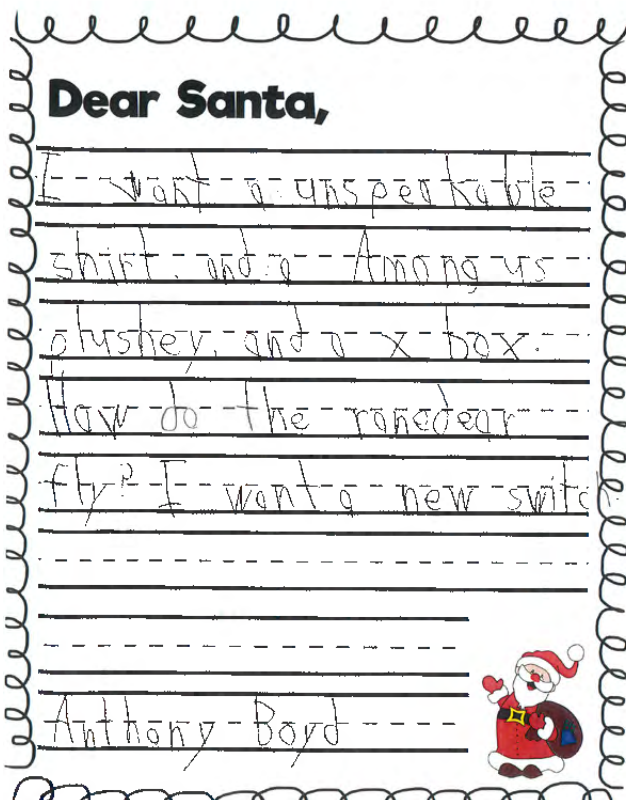 Dear Santa,
I want a unspeakable
shirt. and a Among us
plushey. and a x box.
How do the ranedear
fly? I want a new switch.
Anthony Boyd